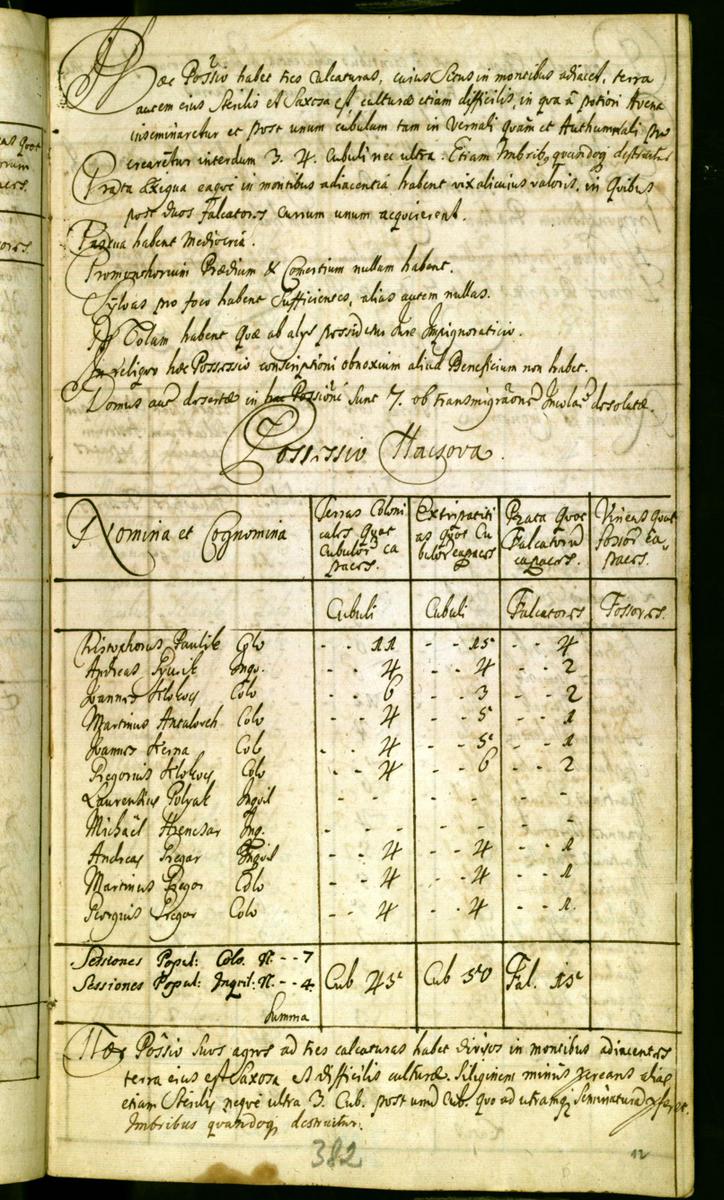 Hæc Possio habet tres calcaturas, cuius Situs in montibus adiacet, terra
autem eius Sterilis et Saxosa est culturæ etiam difficilis, in qua à potiori Avena
inseminaretur et post unum cubulum tam in Vernali quàm et Authumnali pro
crearetur interdum 3. 4. Cubuli nec ultra. Etiam Imbrib9 quandoq destruitur
Prata Exigua eaque in montibus adiacentia habent vix alicuius valoris, in Quibus
post duos Falcatores currum unum acquirerent.
Pascua habent Mediocria.
Promonthorium Prædium & Comertium nullum habent.
Sylvas pro foco habent Sufficientes, alias autem nullas.
Molam habent quæ ab alys possidetur Iure Impignoraticio.
In reliquo hæc Possessio conscriptioni obnoxium aliud Beneficium non habet.
Domus aut desertæ in Possioni sunt 7. ob transmigraonem Incolar desolatæ.
Possessio Haczova.
Nomina et Cognomina
Terras Coloni
cales Quot
Cubulor ca
paces.
Extirpatiti
as quot Cu
bulor capaces
Prata Quot
Falcatorū
capaces.
Vineas quot
fossor Ca„
paces.
Cubuli Cubuli Falcatores Fossores.
Cristophorus Paulik Colo - - 11 - - 15 - - 4
Andreas Inqv. - - 4 - - 4 - - 2
Joannes Klokocz Colo - - 6 - - 3 - - 2
Martinus Antalovch Colo - - 4 - - 5 - - 1
Joannes Herna Colo - - 4 - - 5 - - 1
Gregorius Klokocz Colo - - 4 - - 6 - - 2
Laurentius Polyak Inqvil - - - - - -
Michaël Hrenczar Inq. - - - - - -
Andreas Gregor Inqvil - - 4 - - 4 - - 1
Martinus Gregor Colo - - 4 - - 4 - - 1
Georgius Gregor Colo - - 4 - - 4 - - 1.
Sessiones Popul: Colo. N. - - 7
Sessiones Popul: Inqvil: N. - - 4.
Summa
Cub 45 Cub 50 Fal. 15
Hæc Possio Suos agros ad tres calcaturas habet divisos in montibus adiacentes
terra eius est Saxosa et difficilis culturæ. Siliginem minus
etiam Sterilis neque ultra 3. Cub. post unū Cub. quo ad utramq Seminaturā
Imbribus quandoq destruitur.
382
12